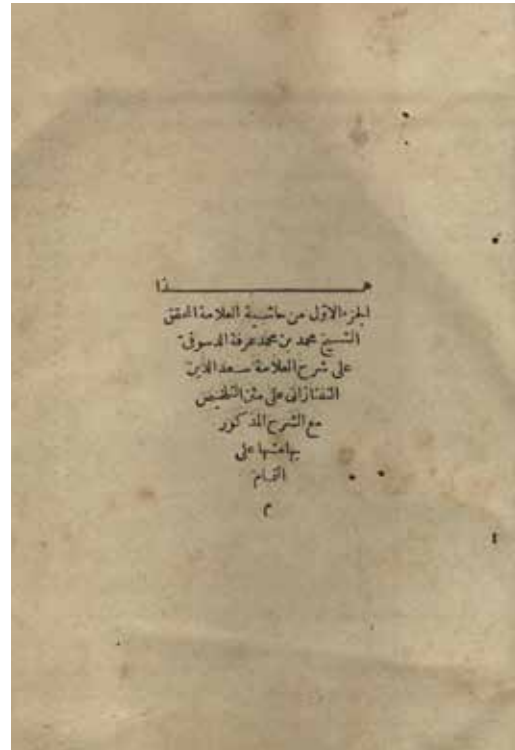 هذا
الجزء الاول من حاشية العلامة المحقق
الشيخ محمد بن محمد عرفة الدسوقى
على شرح العلامة سعد الدين
التفتازانى على متن التلخيص
مع الشرح المذكور
بهامشها على
التمام
م